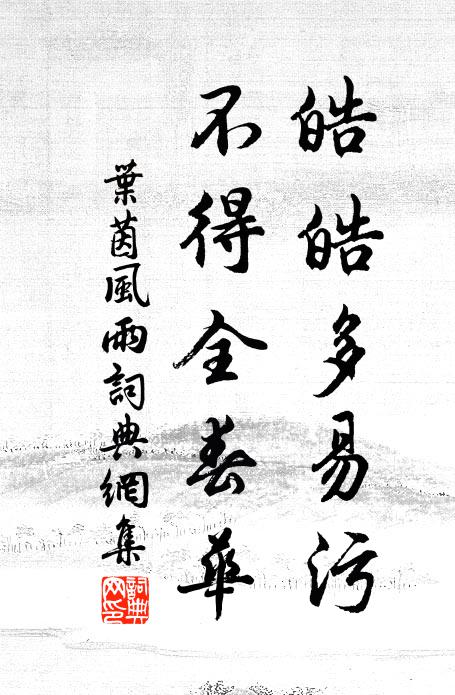 皓皓多易污
不得全春華
葉茵風雨詞典網集
詞典網印